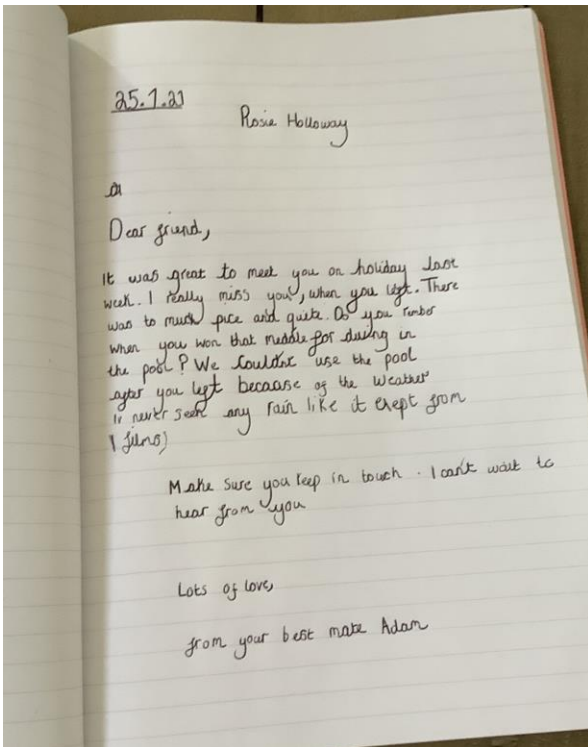 25.1.21
Rosie Holloway
Dear friend,
It was great to meet you on holiday last
week. I really miss you, when you left. There
was to much pice and quite. Do you rember
when you won that meddle for diving in
the pool? We Couldnt use the pool
after you left becaase of the weather
never seen any rain like it exept from
films)
Make sure you keep in touch. I can't wait to
hear from you
Lots of love,
from your best mate Adam